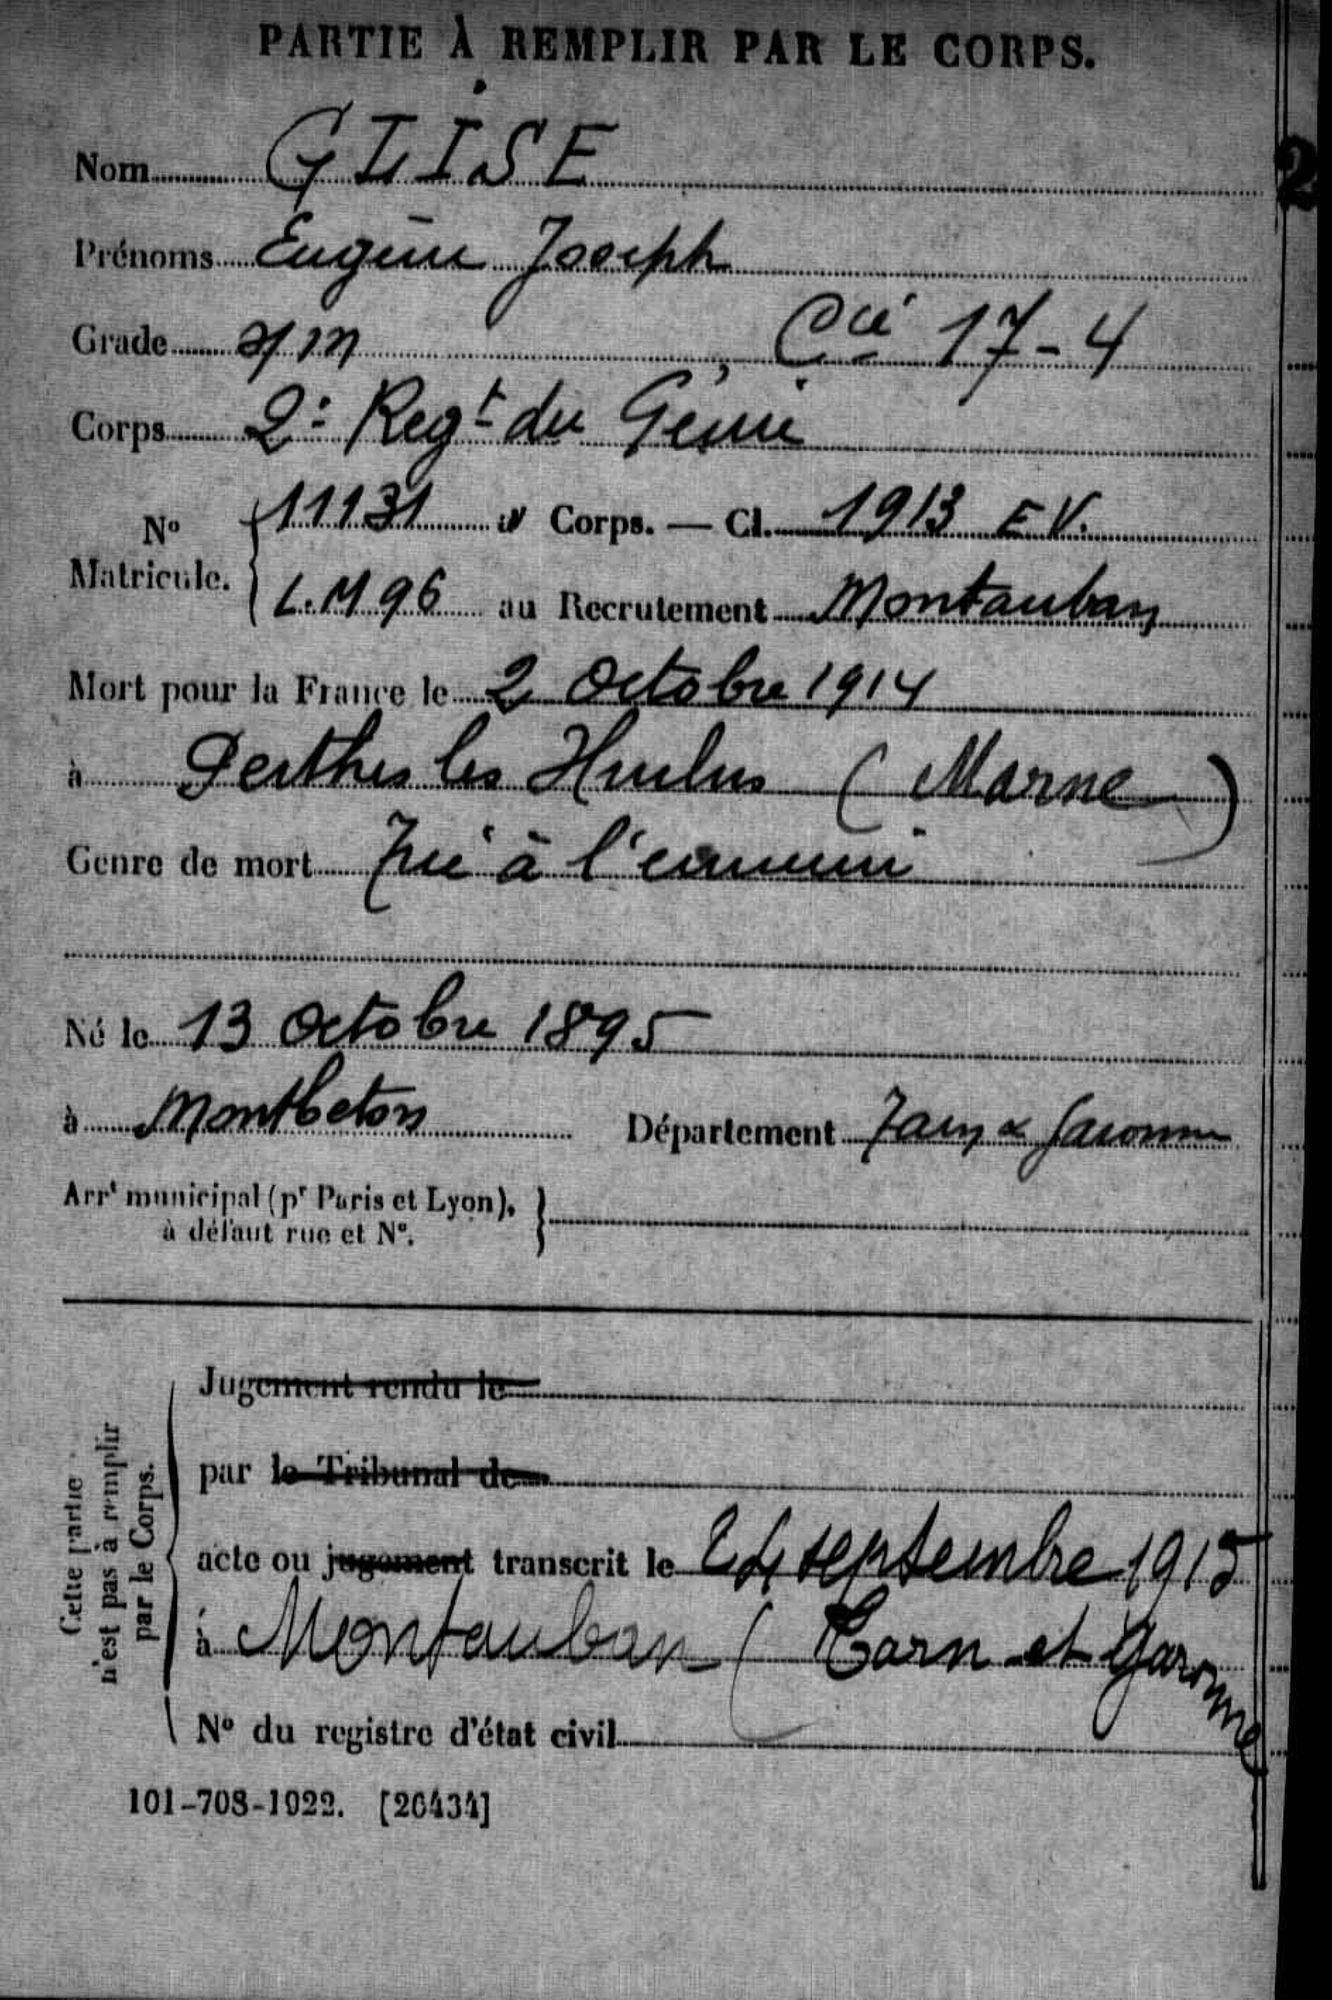 PARTIE À REMPLIR PAR LE CORPS.
2
Nom GLISE
Prénoms Eugène Joseph
Grade s/m Cie 17-4
Corps 2e Regt du Génie
No Matricule. { 11131 au Corps. — Cl. 1913 E.V.
L.M 96 au Recrutement Montauban
Mort pour la France le 2 Octobre 1914
à Perthes les Hurlus (Marne)
Genre de mort Tué à l'ennemi
Né le 13 Octobre 1895
à Montbeton Département Tarn & Garonne
Arrt municipal (pr Paris et Lyon), à défaut rue et No. }
Cette partie n'est pas à remplir par le Corps.
Jugement rendu le
par le Tribunal de
acte ou jugement transcrit le 24 septembre 1915
à Montauban (Tarn et Garonne
No du registre d'état civil
101-708-1922. [26434]